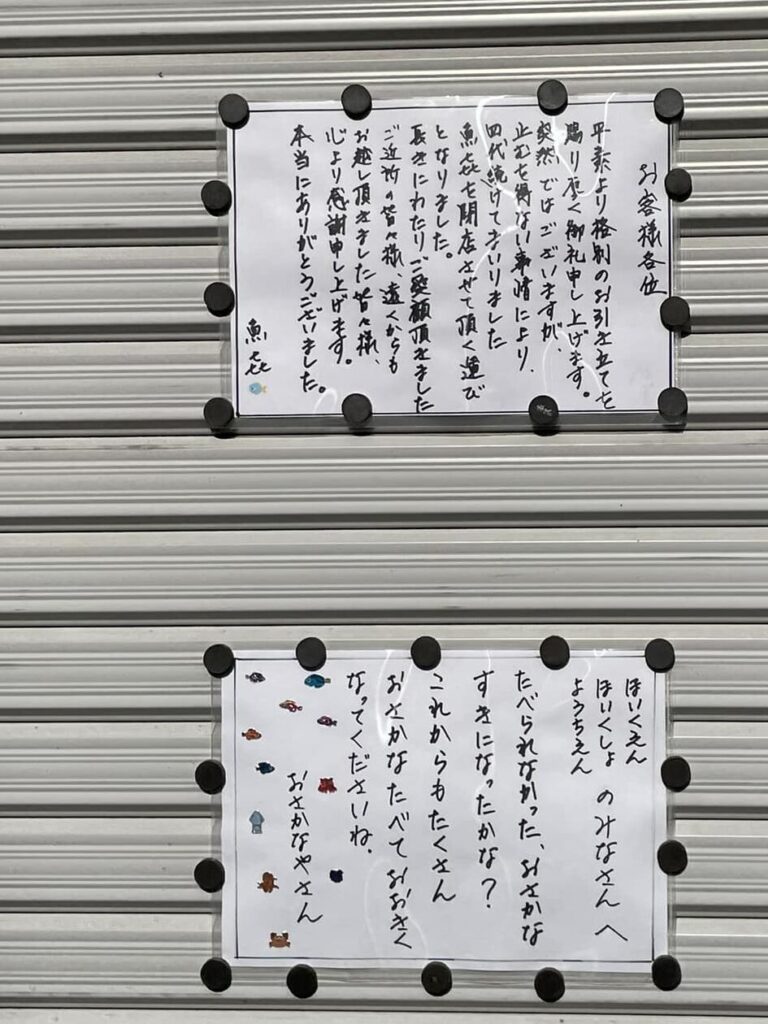 お客様各位
平素より格別のお引き立てを
賜り厚く御礼申し上げます。
突然ではございますが、
止むを得ない事情により、
四代続けてまいりました
魚㐂を閉店させて頂く運び
となりました。
長きにわたりご愛顧頂きました
ご近所の皆々様、遠くからも
お越し頂きました皆々様、
心より感謝申し上げます。
本当にありがとうございました。
魚㐂
ほいくえん
ほいくしょ のみなさんへ
ようちえん
たべられなかった、おさかな
すきになったかな?
これからもたくさん
おさかなたべておおきく
なってくださいね.
おさかなやさん